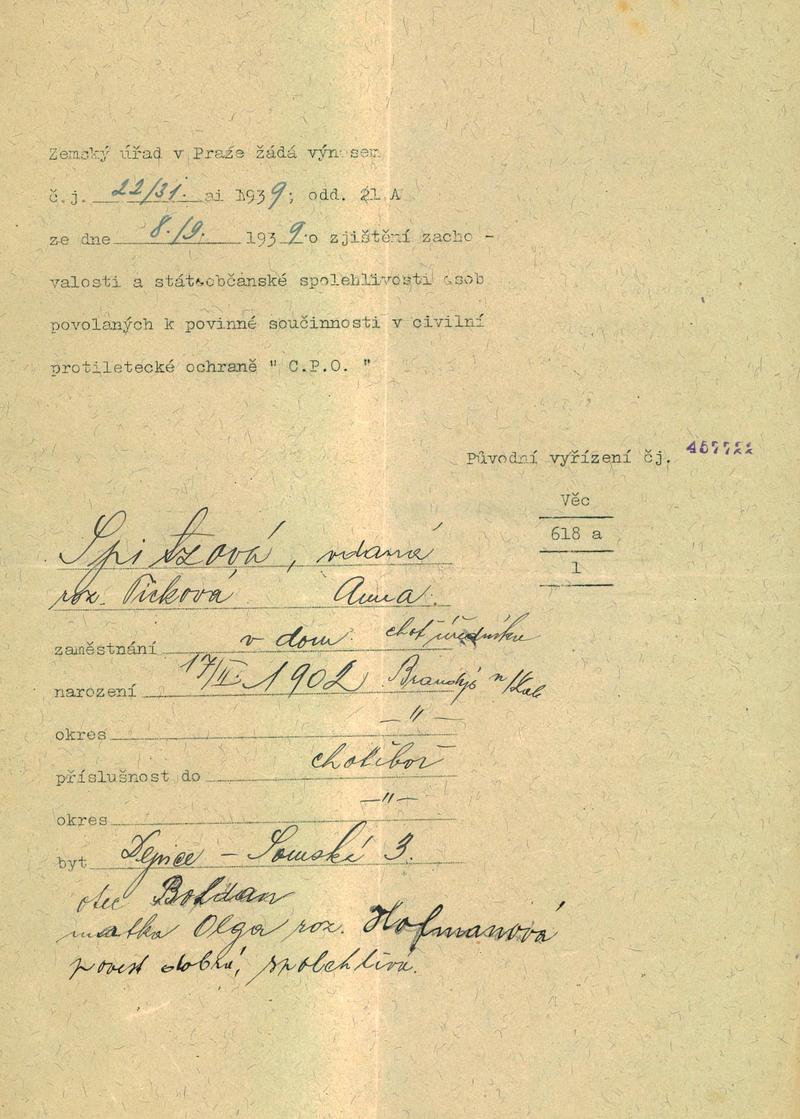 Zemský úřad v Praze žádá výnosem
č.j. 22/31. ai 1939; odd. 21 A
ze dne 8./9. 1939. o zjištění zacho -
valosti a státoobčanské spolehlivosti osob
povolaných k povinné součinnosti v civilní
protiletecké ochraně " C.P.O. "
Původní vyřízení čj.
Věc
618 a
1
Spitzová, vdaná
roz. Picková Anna.
zaměstnání v dom. choť úředníka
narození 17/II. 1902 Brandýs n/Lab
okres —"—
příslušnost do Chotěboř
okres —"—
byt Dejvice - 3.
otec Bohdan
matka Olga roz. Hofmanová
pověst dobrá, spolehlivá.